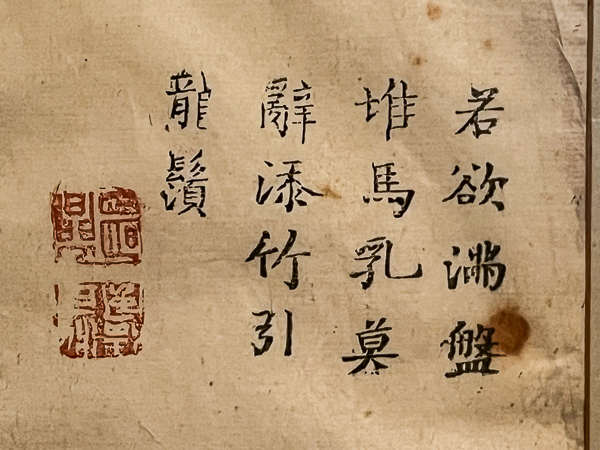 若欲満盤
堆馬乳莫
辭添竹引
龍鬚